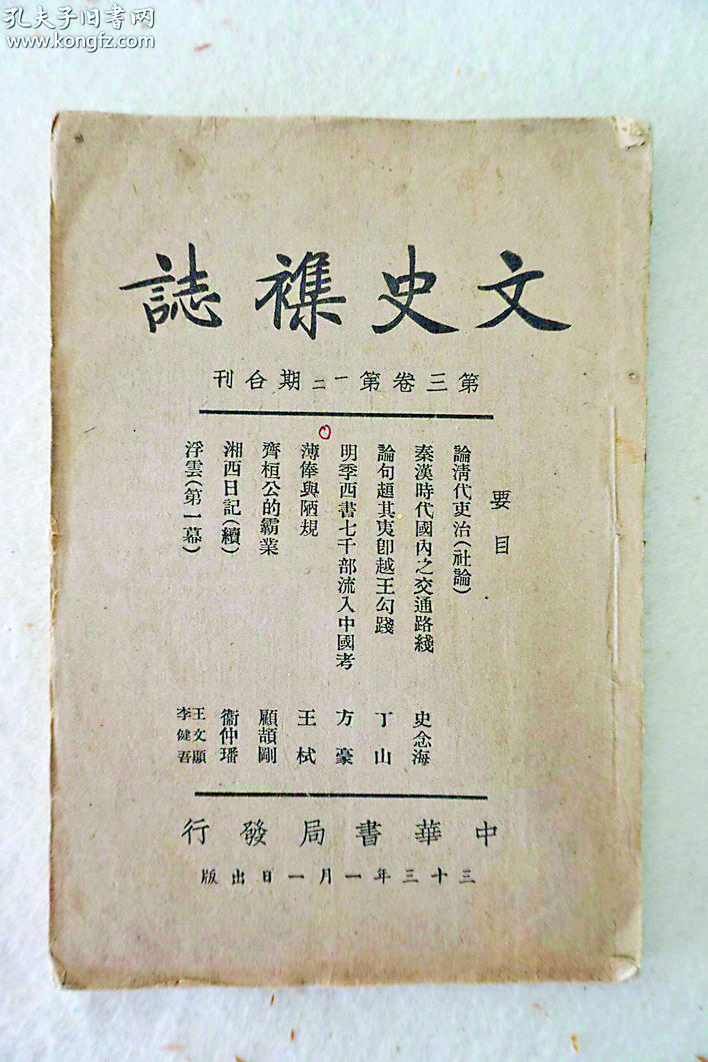 孔夫子旧书网
www.kongfz.com
文史襍誌
第三卷第一二期合刊
要目
論清代吏治(社論)
秦漢時代國內之交通路綫 史念海
論句𧻲其夷卽越王勾踐 丁山
明季西書七千部流入中國考 方豪
薄俸與陋規 王栻
齊桓公的霸業 顧頡剛
湘西日記(續) 衞仲璠
浮雲(第一幕) 王文顯 李健吾
中華書局發行
三十三年一月一日出版